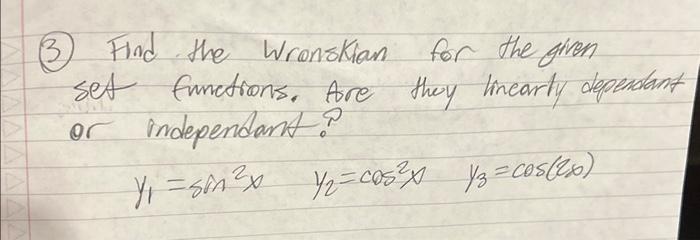 ③ Find the Wronskian for the given
set functions. Are they linearly dependant
or independant?
y₁ = sin²x y₂ = cos²x y₃ = cos(2x)